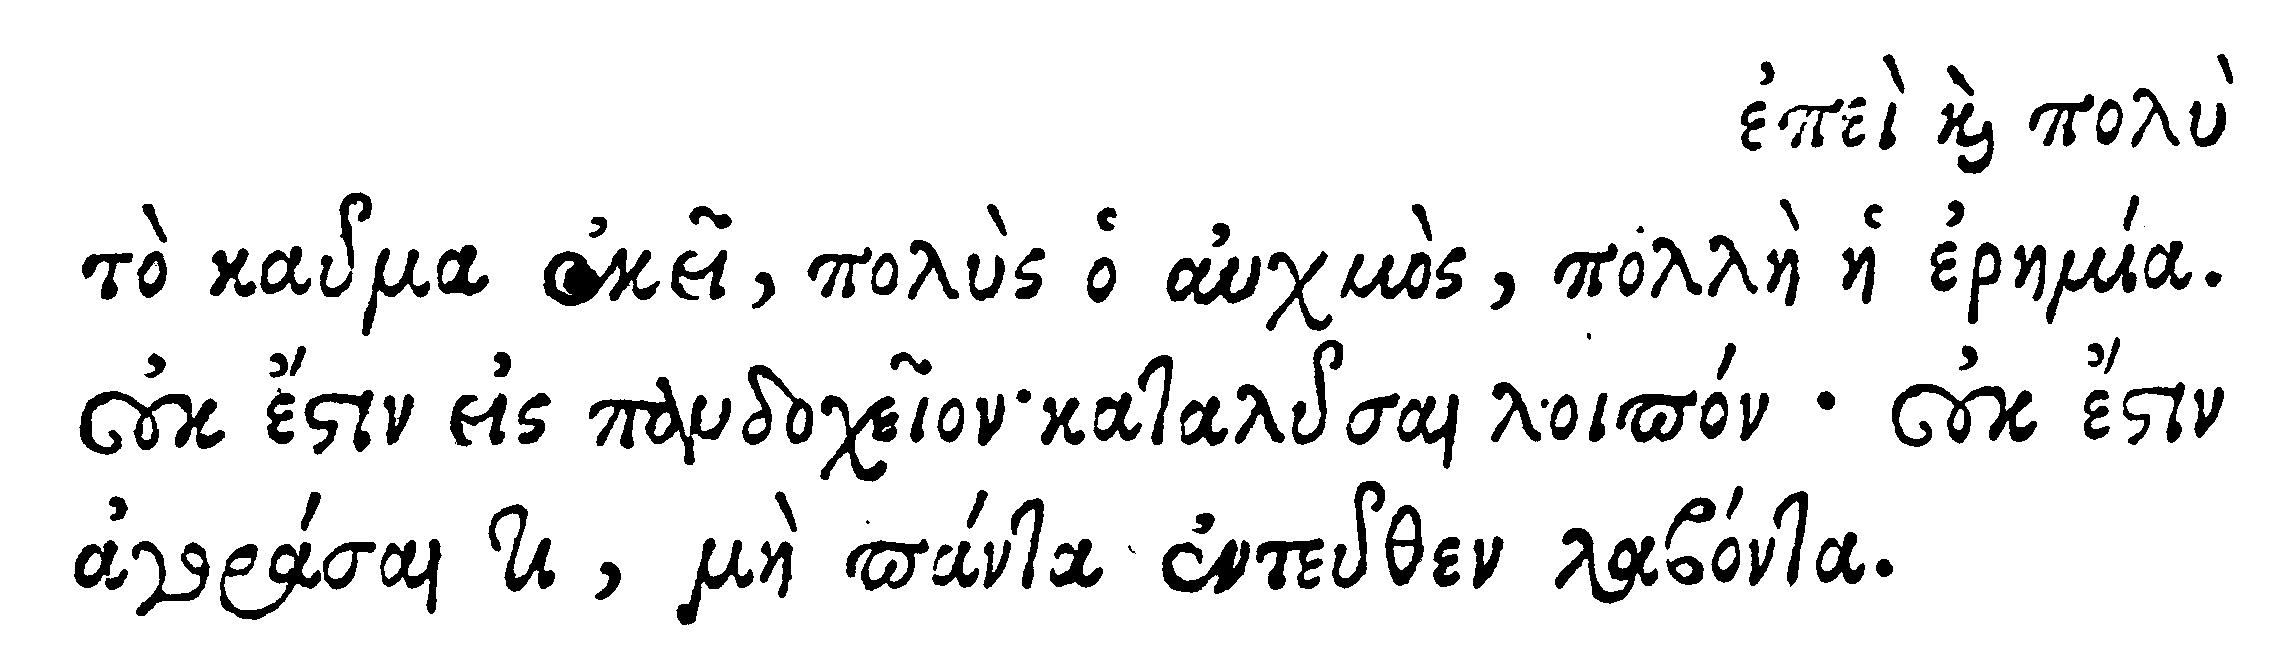 ἐπεὶ καὶ πολὺ
τὸ καῦμα ἐκεῖ, πολὺς ὁ αὐχμὸς, πολλὴ ἡ ἐρημία.
οὐκ ἔστιν εἰς πανδοχεῖον καταλῦσαι λοιπόν · οὐκ ἔστιν
ἀγοράσαι τι, μὴ πάντα ἐντεῦθεν λαβόντα.